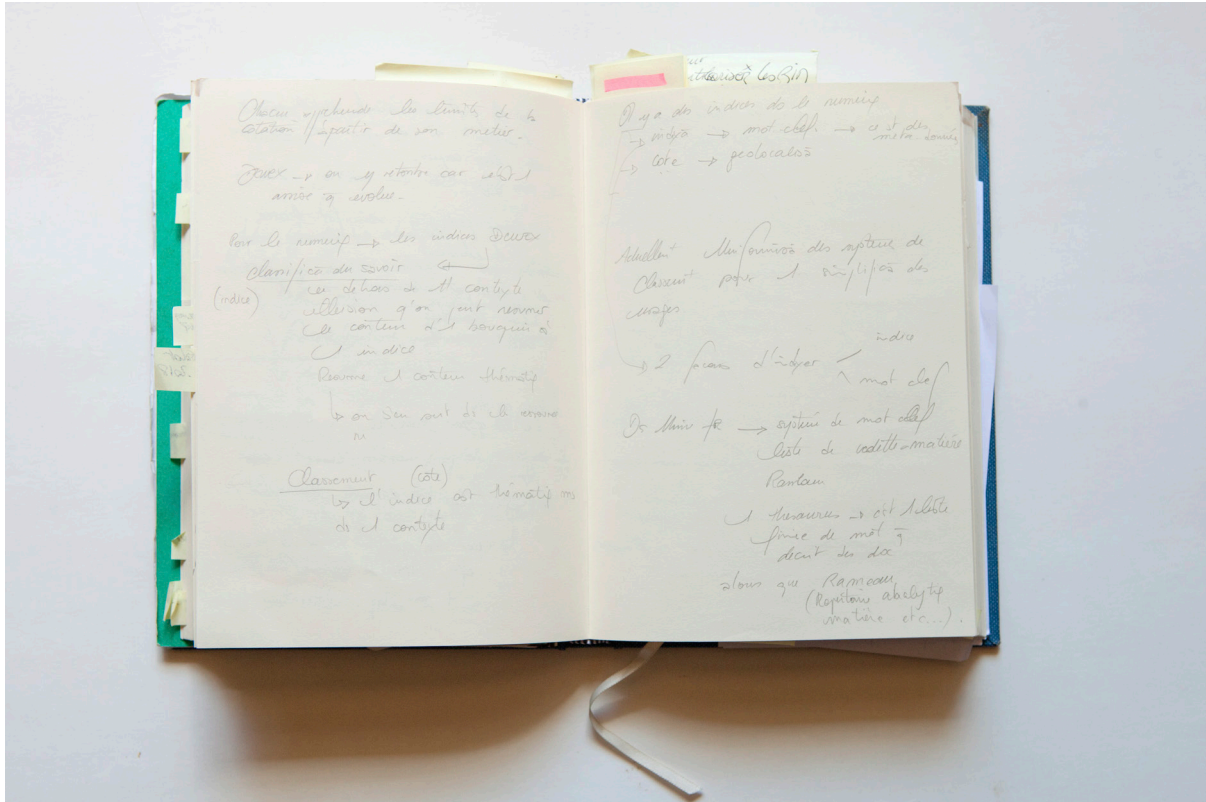 Chacun appréhende les limites de la
cotation à partir de son métier.
Dewey → on y retombe car
arrive à évoluer.
Pour le numériq → les indices Dewey
classificā du savoir
(indice)
en dehors de 1 contexte
illusion qu'on peut résumer
le contenu d'1 bouquin à
1 indice
Résume 1 contenu thématiq
↳ on s'en sert ds
Classement (cote)
↳ l'indice est thématiq ms
ds 1 contexte
Il y a des indices ds le numériq
→ indexā → mot clef → ce st des
méta données
→ cote → géolocalisā
Actuellent Uniformisā des système de
Classent pour 1 simplificā des
usages
→ 2 façons d'indexer
indice
mot clef
Ds Univ → système de mot clef
liste de vedette-matière
Rameau
1 thesaurus → est 1 liste
finie de mot q̄
décrit des doc
alors que Rameau
(Répertoire abalytiq
matière etc...).